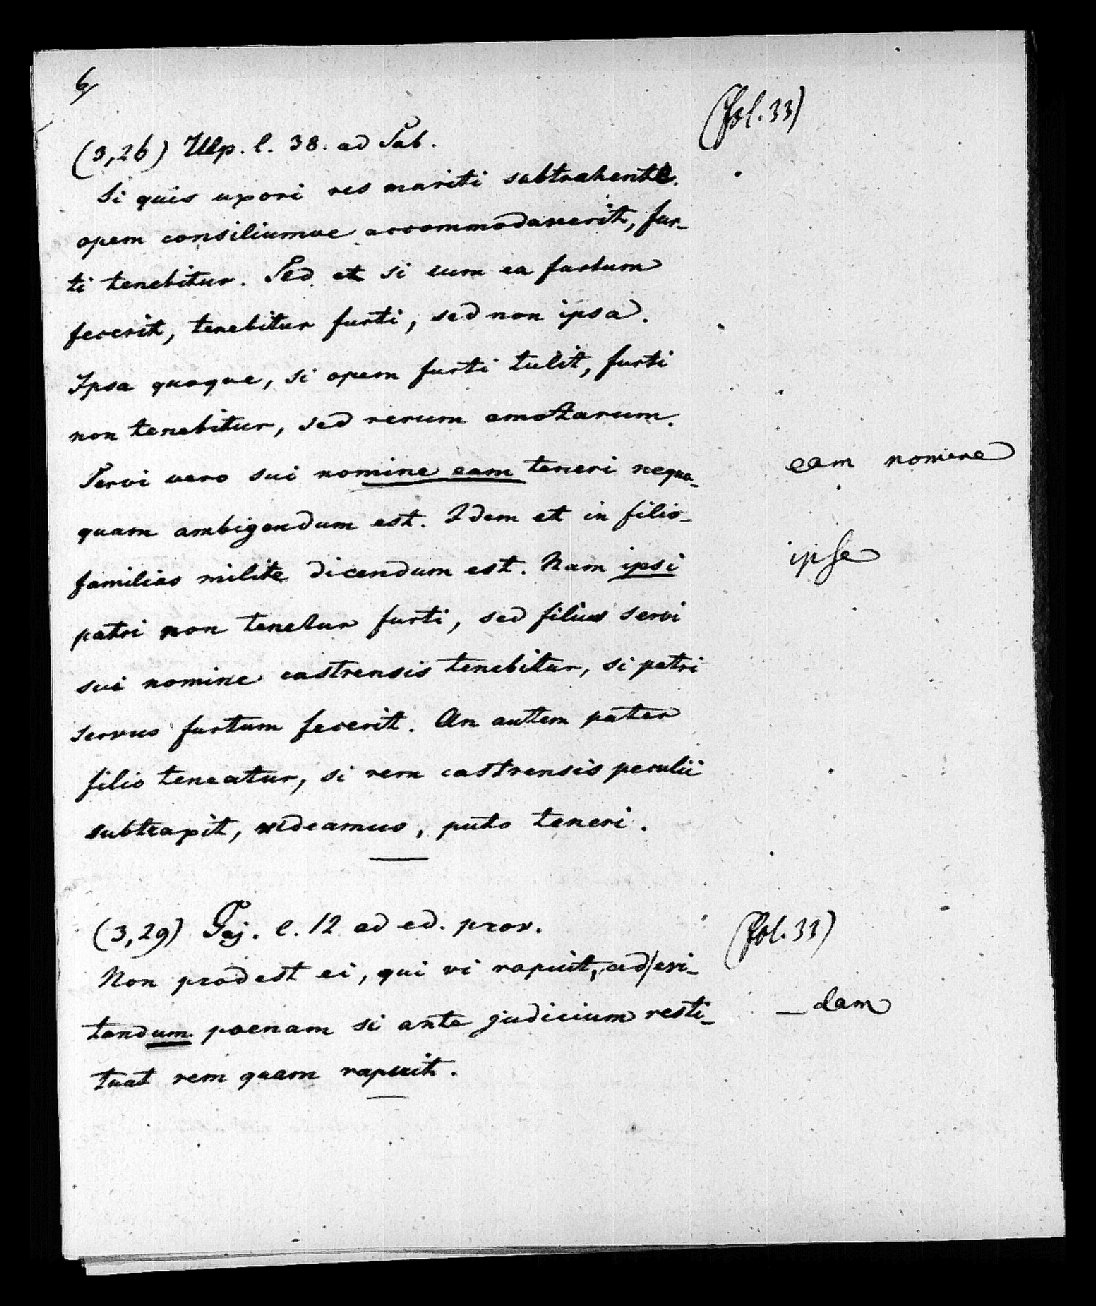 6,
(fol. 33)
(3,26) Ulp. l. 38. ad Sab.
Si quis uxori res mariti subtrahenti
opem consiliumve accommodaverit, fur-
ti tenebitur. Sed et si cum ea furtum
fecerit, tenebitur furti, sed non ipsa.
Ipsa quoque, si opem furti tulit, furti
non tenebitur, sed rerum amotarum.
Servi vero sui nomine eam teneri nequa-
eam nomine
quam ambigendum est. Idem et in filio-
familias milite dicendum est. Nam ipsi
ipse
patri non tenetur furti, sed filius servi
sui nomine castrensis tenebitur, si patri
servus furtum fecerit. An autem pater
filio teneatur, si rem castrensis peculii
subtraxit, videamus, puto teneri.
(3,29) Gaj. l. 12 ad ed. prov.
(fol. 33)
Non prodest ei, qui vi rapuit, ad evi-
tandum poenam si ante judicium resti-
- dam
tuat rem quam rapuit.